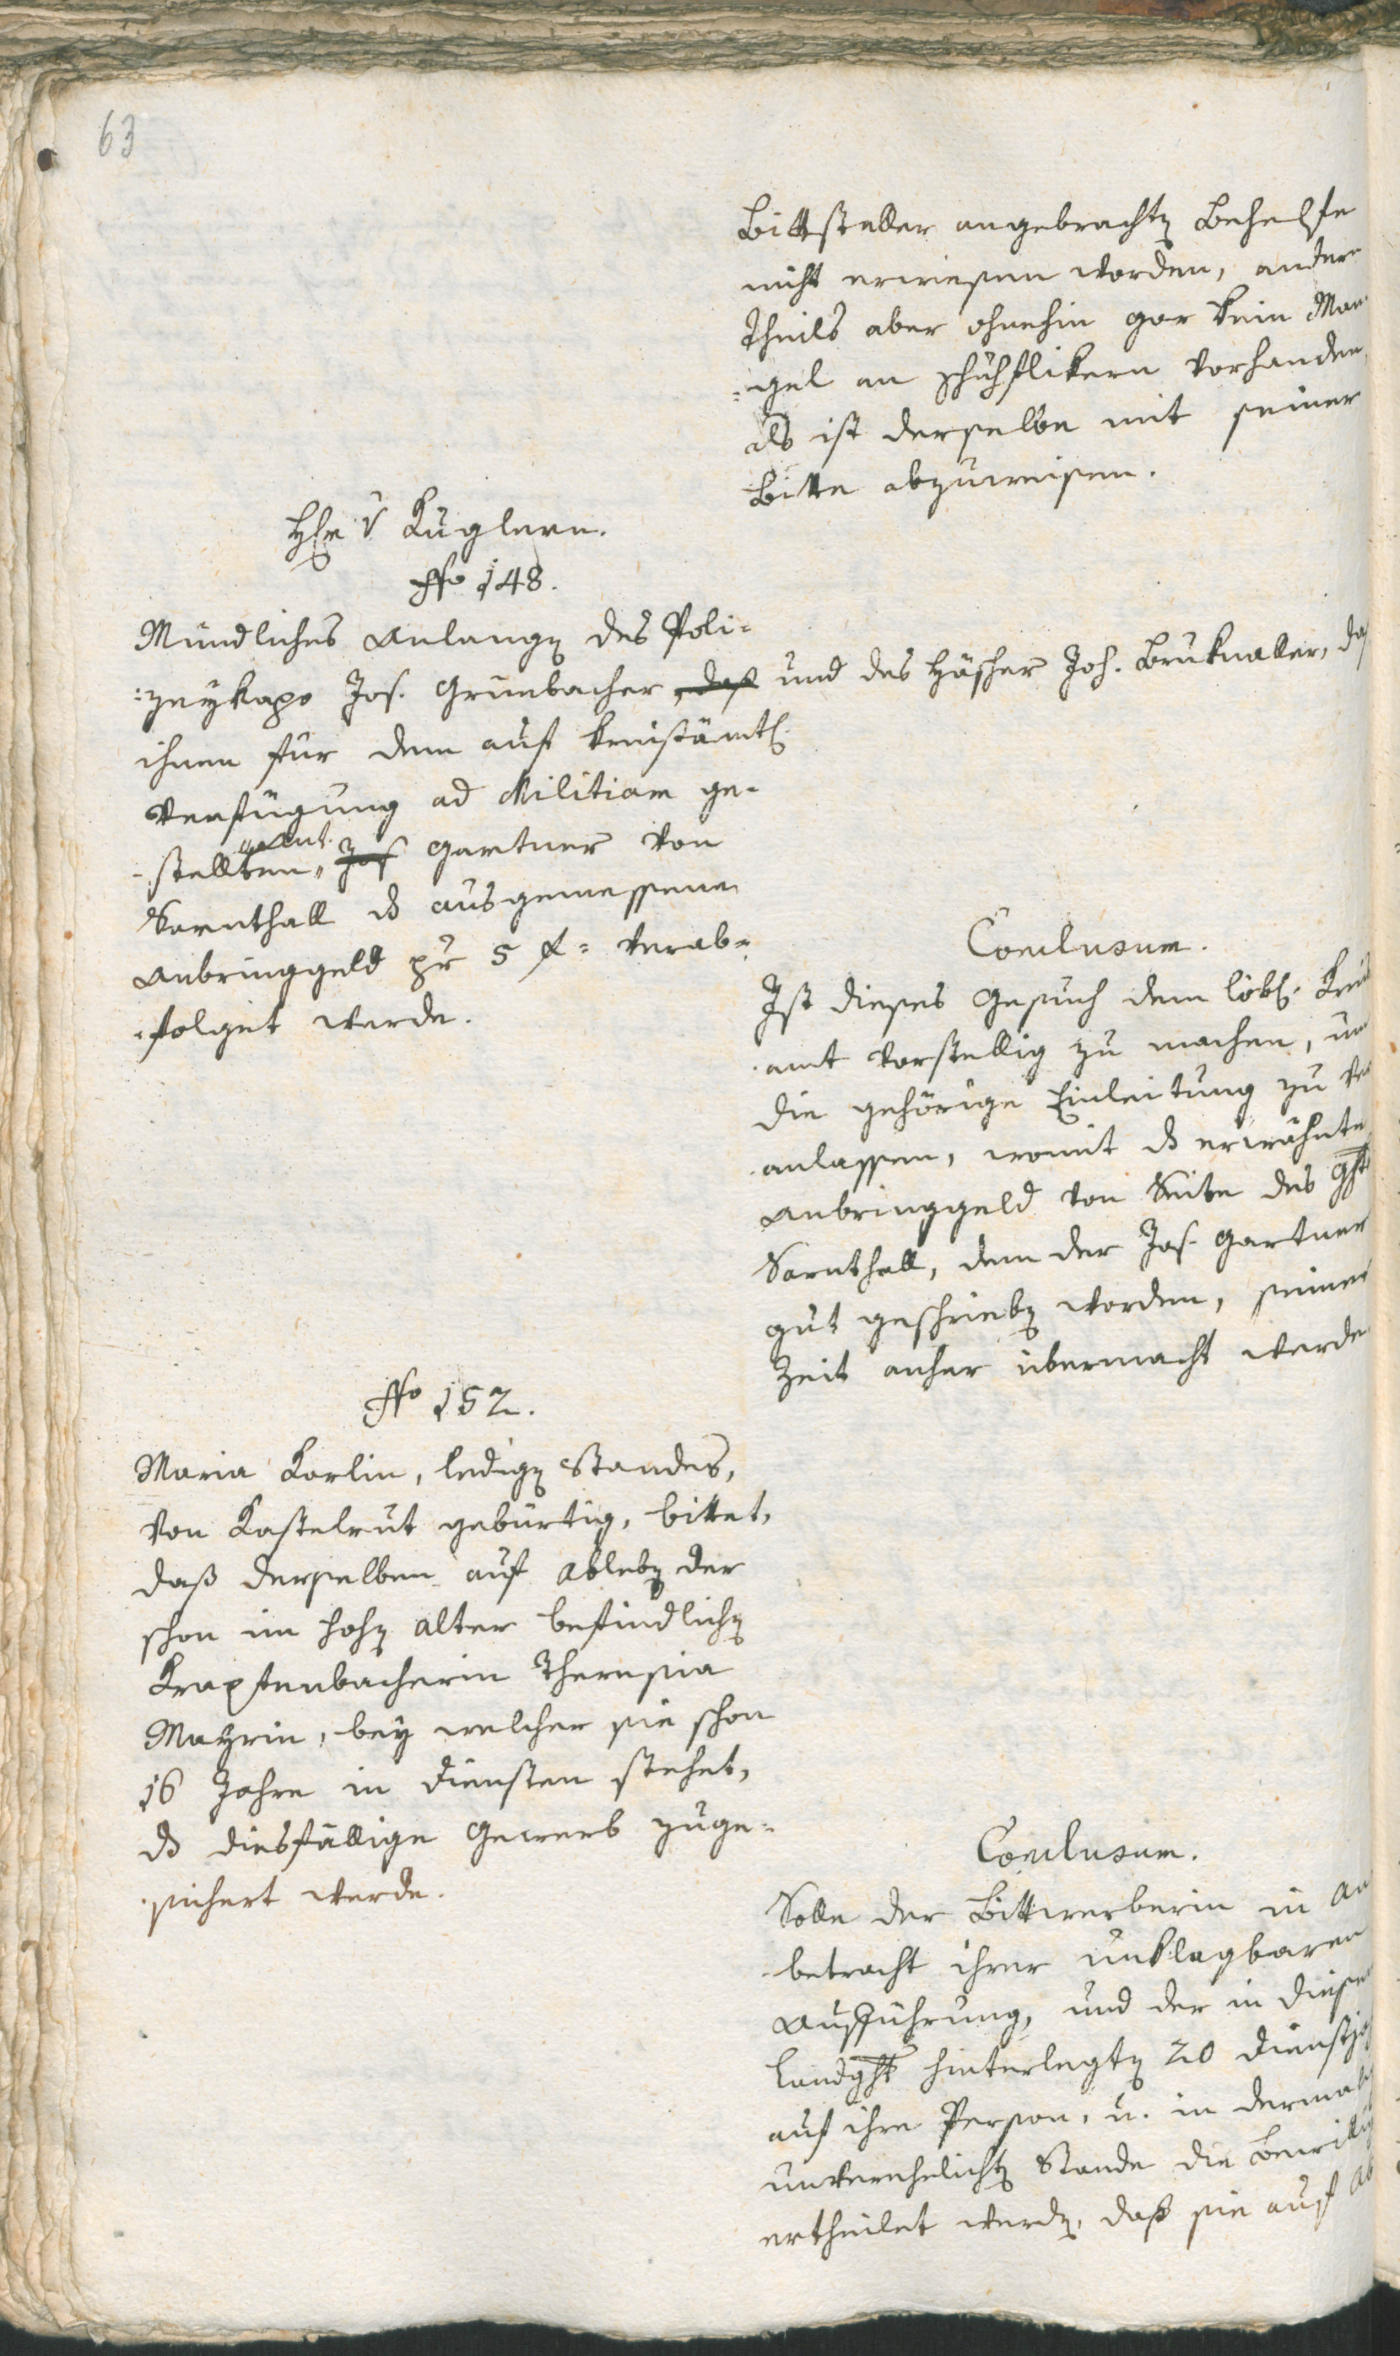 63
Bittsteller angebrachten Behelfe
nicht erwiesen worden, andern
theils aber ohnehin gar kein Man=
=gel an schuhflikern vorhanden,
als ist derselbe mit seiner
Bitte abzuweisen.
Hhr v Kuglern.
No 148.
Mündliches Anlangen des Poli=
=zeykapo Jos. Grünbacher, daß und des Häscher Joh. Brukmaller, daß
ihnen für dem auf kreisämtl.
Verfügung ad Militiam ge=
=stellten Jos Gartner von
Sarnthall ds ausgemessene
Anbringgeld pr 5 f= verab=
=folget werde.
Conclusum.
Ist dieses Gesuch dem löbl. Kreis
amt vorstellig zu machen, um
die gehörige Einleitung zu ver
anlassen, womit ds erwähnte
Anbringgeld von Seite des Ghts
Sarnthall, dem der Jos. Gartner
gut geschrieben worden, seiner
Zeit anher übermacht werde
No 152.
Maria Karlin, ledigen Standes,
von Kastelrut gebürtig, bittet,
daß derselben auf Ableben der
schon im hohen Alter befindlichen
Krapfenbacherin Theresia
Mayrin, bey welcher sie schon
16 Jahre in Diensten stehet,
ds diesfällige Gewerb zuge=
=sichert werde.
Conclusum.
Solle der Bittwerberin in An
betracht ihrer unklagbaren
Aufführung, und der in diesem
Landght hinterlegten 20 Dienstjah
auf ihre Person, u. in dermalig
unverehelichten Stande die Bewillig
ertheilet werden, daß sie auf Ab